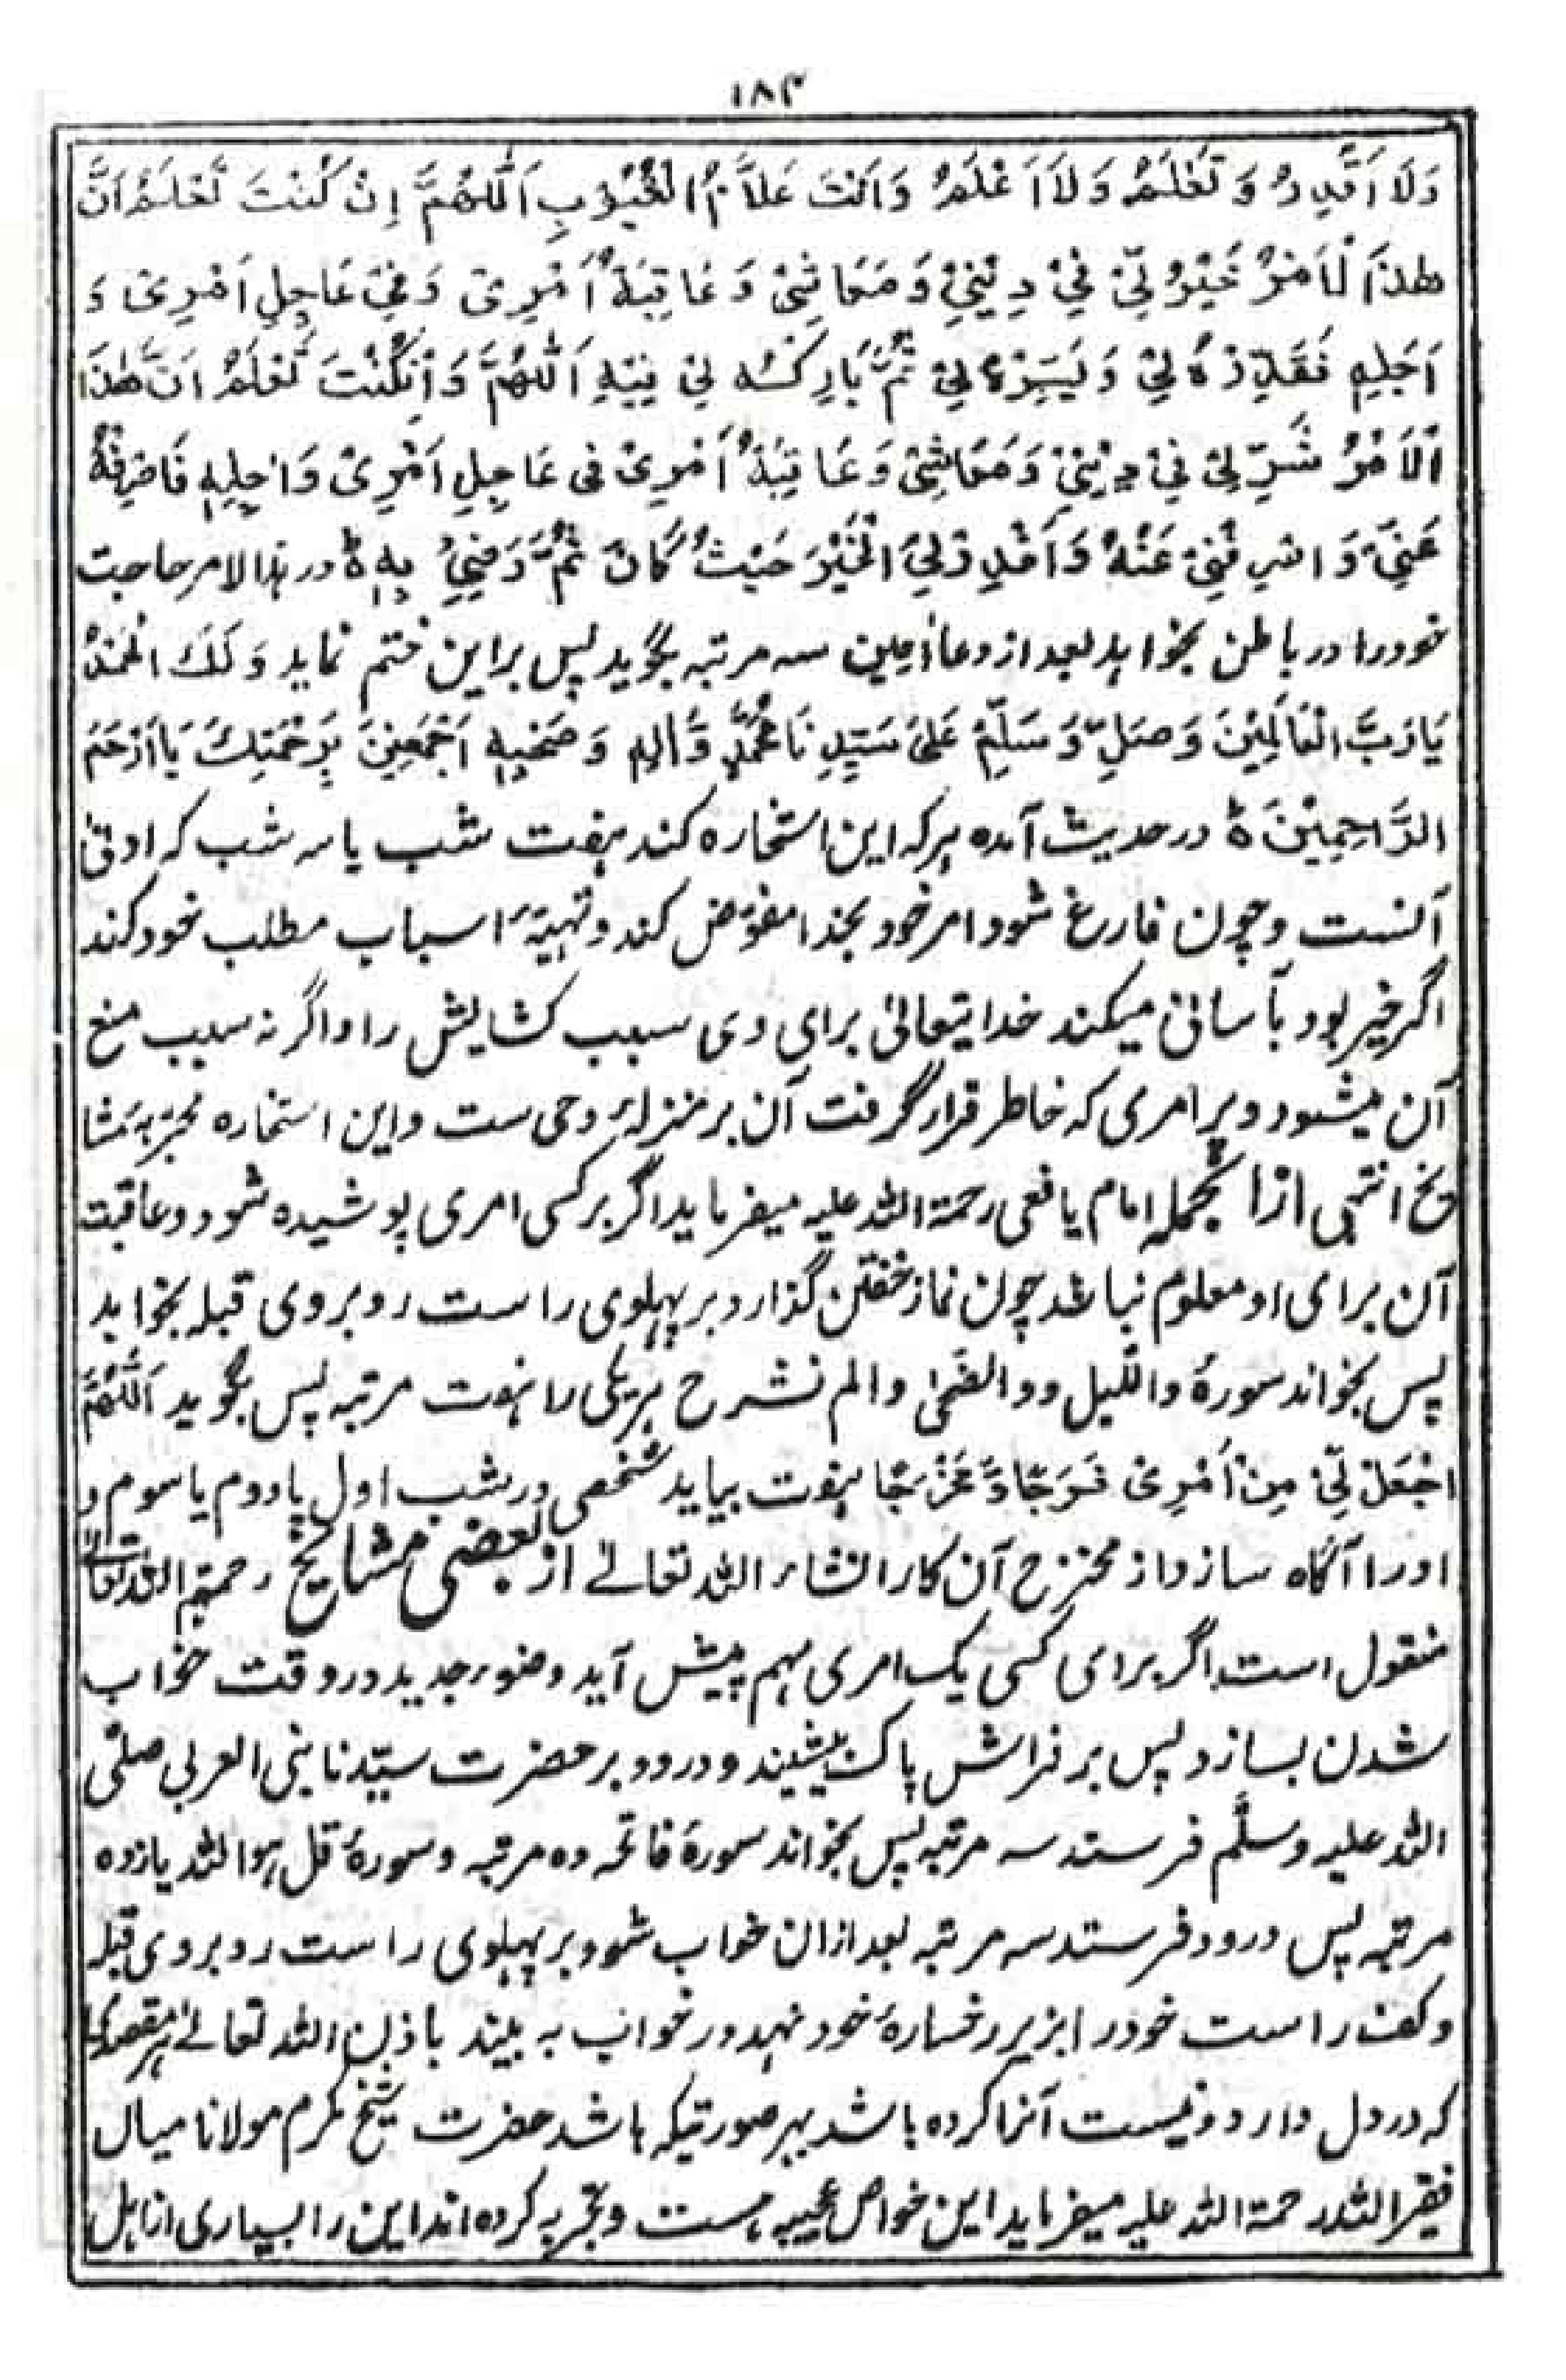 ۱۸۳
وَلَا اَقْدِرُ وَتَعْلَمُ وَلَا اَعْلَمُ وَاَنْتَ عَلَّامُ الْغُیُوْبِ اَللّٰهُمَّ اِنْ كُنْتَ تَعْلَمُ اَنَّ
هٰذَا لْاَمْرُ خَیْرٌ لِّیْ فِیْ دِیْنِیْ وَمَعَاشِیْ وَعَاقِبَةُ اَمْرِیْ وَفِیْ عَاجِلِ اَمْرِیْ وَ
اَجَلِهٖ فَقَدِّرْهُ لِیْ وَیَسِّرْهُ لِیْ ثُمَّ بَارِكْ لِیْ فِیْهِ اَللّٰهُمَّ وَاِنْكُنْتَ تَعْلَمُ اَنَّ هٰذَا
الْاَمْرُ شَرٌّ لِیْ فِیْ دِیْنِیْ وَمَعَاشِیْ وَعَاقِبَةُ اَمْرِیْ فِی عَاجِلِ اَمْرِیْ وَاٰجِلِهٖ فَاصْرِفْهُ
عَنِّیْ وَاصْرِفْنِیْ عَنْهُ وَاَقْدِرْلِیَ الْخَیْرَ حَیْثُ كَانَ ثُمَّ رَضِّنِیْ بِهٖ ه در هذا الامر حاجت
خود را در باطن بخواهد بعد از دعا اٰمین سه مرتبه بگوید پس بر این ختم نماید وَلَكَ الْحَمْدُ
یَارَبَّ الْعَالَمِیْنَ وَصَلِّ وَسَلِّمْ عَلیٰ سَیِّدِنَا مُحَمَّدٍ وَّاٰلِهٖ وَصَحْبِهٖ اَجْمَعِیْنَ بِرَحْمَتِكَ یَا اَرْحَمَ
الرَّاحِمِیْنَ ه در حدیث آمده هر که این استخاره کند هفت شب یا سه شب که ادنیٰ
آنست وچون فارغ شود امر خود بخدا مفوّض کند و تهیّهٔ اسباب مطلب خود کند
اگر خیر بود بآسانی میکند خدایتعالیٰ برای وی سبب کشایش را واگر نه سبب منع
آن میشود و هر امری که خاطر قرار گرفت آن بر منزلهٔ وحی ست و این استخاره مجرّبهٔ مشا
ئخ انتهی ازانجمله امام یافعی رحمة الله علیه میفرماید اگر بر کسی امری پوشیده شود و عاقبت
آن برای او معلوم نباشد چون نماز خفتن گذارد بر پهلوی راست روبروی قبله بخوابد
پس بخواند سورهٔ واللّیل و والضّحیٰ والم نشرح هر یکی را هفت مرتبه پس بگوید اَللّٰهُمَّ
اجْعَلْ لِّیْ مِنْ اَمْرِیْ فَرَجًا وَّمَخْرَجًا هفت بیاید شخصی در شب اول یا دوم یا سوم و
او را آگاه سازد از مخرج آن کار انشاء الله تعالےٰ از بعضی مشایخ رحمهم الله تعالےٰ
منقول است اگر برای کسی یک امری مهم پیش آید وضوء جدید در وقت خواب
شدن بسازد پس بر فراش پاک بنشیند و درود بر حضرت سیّدنا نبی العربی صلّی
الله علیه وسلّم فرستد سه مرتبه پس بخواند سورهٔ فاتحه ده مرتبه و سورهٔ قل هوالله یازده
مرتبه پس درود فرستد سه مرتبه بعد ازان خواب شود بر پهلوی راست روبروی قبله
و کف راست خود را بزیر رخسارهٔ خود نهد در خواب به بیند باذن الله تعالےٰ هر مقصدی
که در دل دارد و نیست آنرا کرده باشد بهر صورتیکه باشد حضرت شیخ مکرم مولانا میال
فقیرالله رحمة الله علیه میفرماید این خواص عجیبه هست و تجربه کرده اند این را بسیاری از اهل